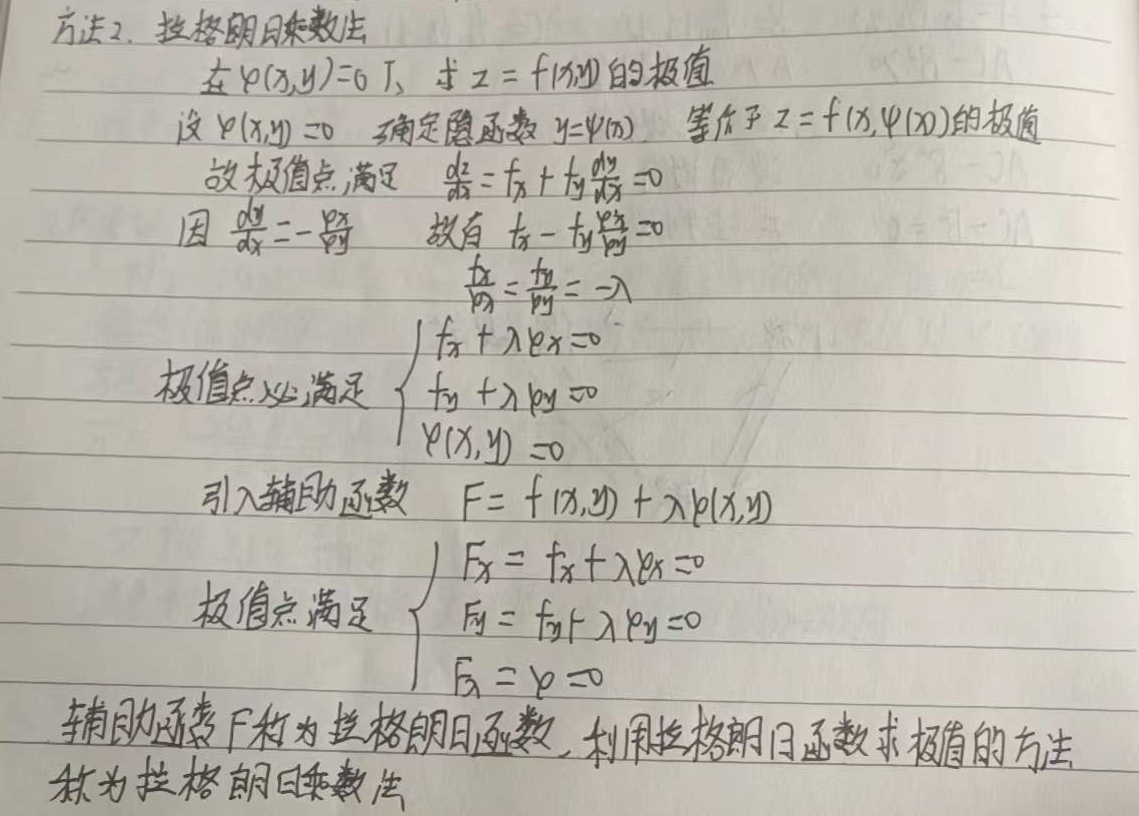 方法2. 拉格朗日乘数法
在φ(x,y)=0下, 求 z = f(x,y)的极值
设 φ(x,y)=0 确定隐函数 y=ψ(x) 等价于 z = f(x,ψ(x))的极值
故极值点满足 dz/dx = fx + fy dy/dx = 0
因 dy/dx = - φx/φy 故有 fx - fy φx/φy = 0
fx/φx = fy/φy = -λ
fx + λφx = 0
极值点必满足 fy + λφy = 0
φ(x,y) = 0
引入辅助函数 F = f(x,y) + λφ(x,y)
Fx = fx + λφx = 0
极值点满足 Fy = fy + λφy = 0
Fλ = φ = 0
辅助函数F称为拉格朗日函数, 利用拉格朗日函数求极值的方法
称为拉格朗日乘数法